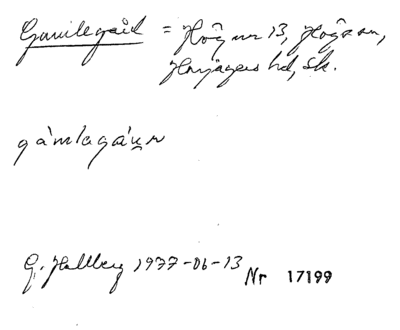 Gamlegård = Hög nr 13, Högs sn,
Harjagers hd, Sk.
gàmlagǻʀn
G. Hallberg 1977-06-13 Nr 17199